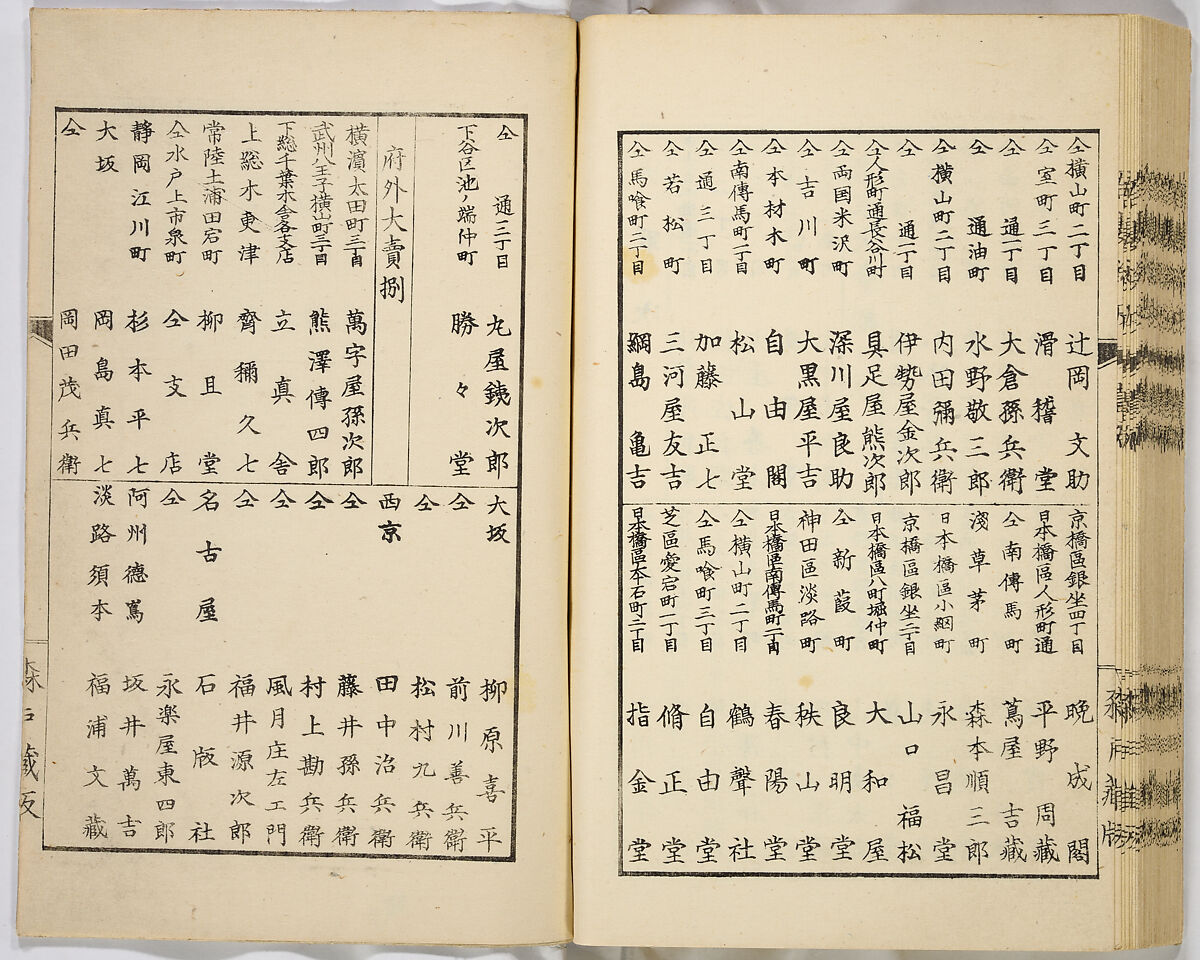 仝横山町二丁目 辻岡文助
仝室町三丁目 滑稽堂
仝通一丁目 大倉孫兵衛
仝通油町 水野敬三郎
仝横山町二丁目 内田彌兵衛
仝通一丁目 伊勢屋金次郎
仝人形町通長谷川町 具足屋熊次郎
仝両国米沢町 深川屋良助
仝吉川町 大黒屋平吉
仝本材木町 自由閣
仝南傳馬町二丁目 松山堂
仝通三丁目 加藤正七
仝若松町 三河屋友吉
仝馬喰町二丁目 綱島亀吉
京橋區銀坐四丁目 晩成閣
日本橋區人形町通 平野周藏
仝南傳馬町 蔦屋吉藏
淺草茅町 森本順三郎
日本橋區小網町 永昌堂
京橋區銀坐二丁目 山口福松
日本橋區八町堀仲町 大和屋
仝新葭町 良明堂
神田區淡路町 秩山堂
日本橋區南傳馬町二丁目 春陽堂
仝横山町二丁目 鶴聲社
仝馬喰町三丁目 自由堂
芝區愛宕町一丁目 脩正堂
日本橋區本石町二丁目 指金堂
仝通三丁目 丸屋銕次郎
下谷区池ノ端仲町 勝々堂
府外大賣捌
横濱太田町三丁目 萬字屋孫次郎
武州八王子横山町三丁目 熊澤傳四郎
下總千葉木舎各支店 立真舎
上總木更津 齊稱久七
常陸土浦田宕町 柳旦堂
仝水戸上市泉町 仝支店
靜岡江川町 杉本平七
大坂 岡島真七
仝 岡田茂兵衛
大坂 柳原喜平
仝 前川善兵衛
仝 松村九兵衛
西京 田中治兵衛
仝 藤井孫兵衛
仝 村上勘兵衛
仝 風月庄左エ門
仝 福井源次郎
名古屋 石版社
永楽屋東四郎
阿州德嶌 坂井萬吉
淡路須本 福浦文藏